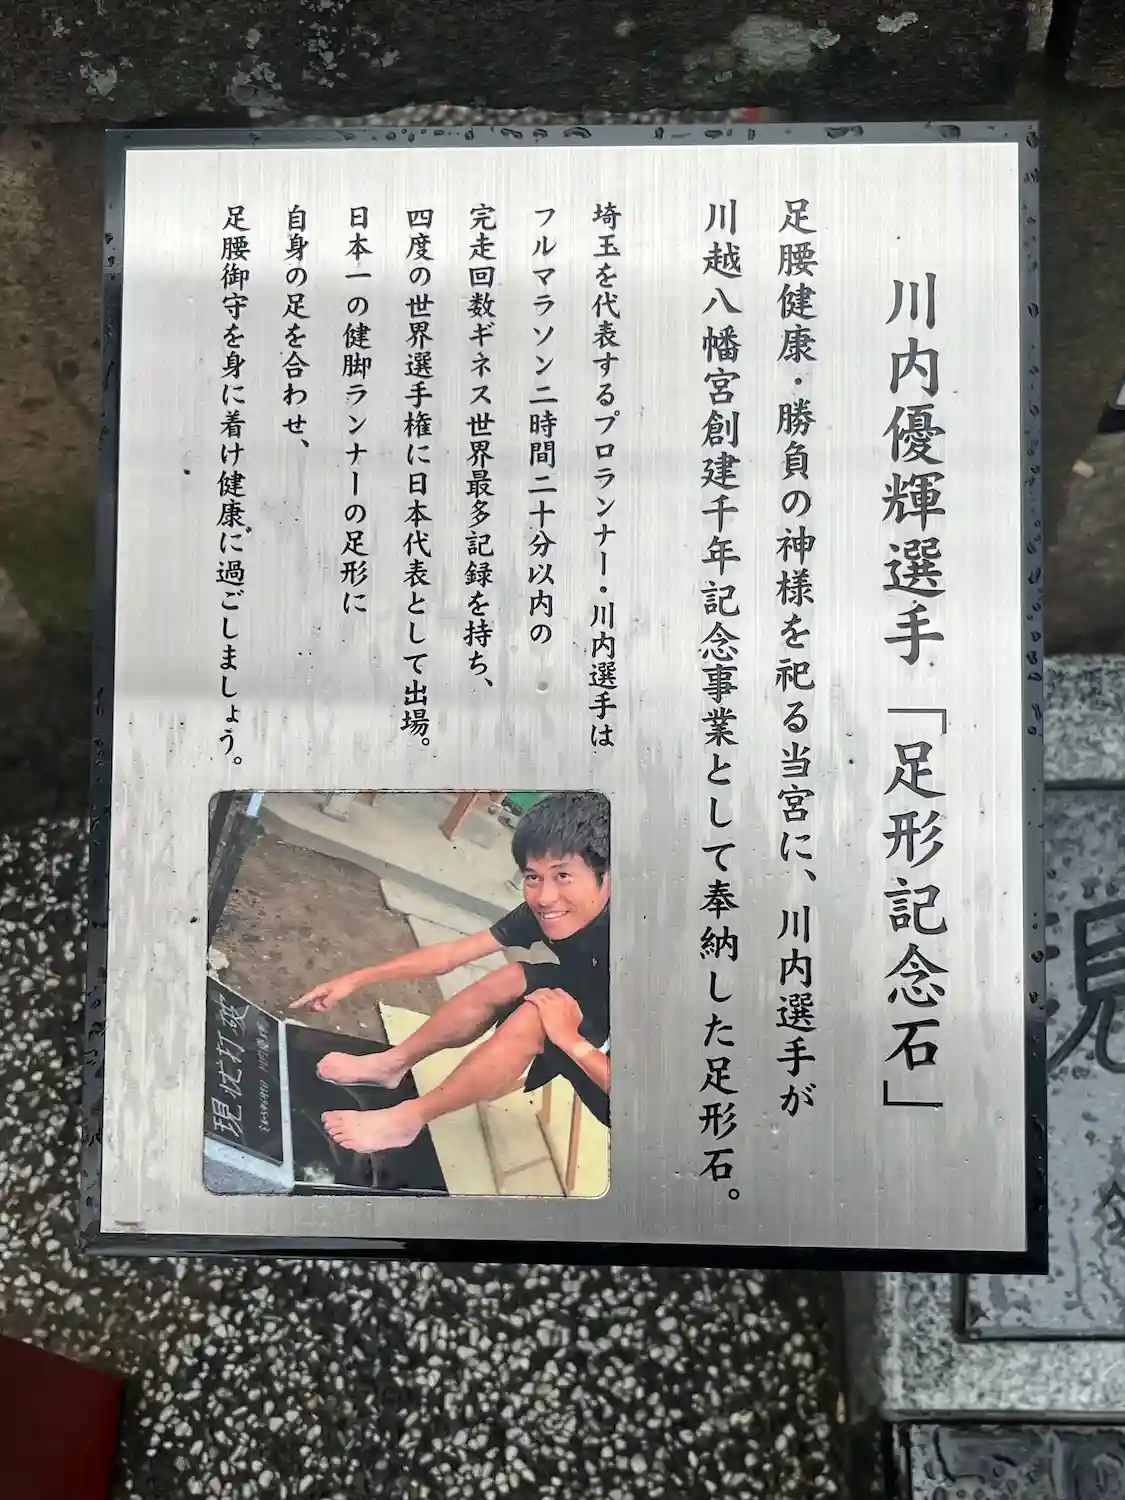 川内優輝選手「足形記念石」
足腰健康・勝負の神様を祀る当宮に、川内選手が
川越八幡宮創建千年記念事業として奉納した足形石。
埼玉を代表するプロランナー・川内選手は
フルマラソン二時間二十分以内の
完走回数ギネス世界最多記録を持ち、
四度の世界選手権に日本代表として出場。
日本一の健脚ランナーの足形に
自身の足を合わせ、
足腰御守を身に着け健康に過ごしましょう。
現状打破